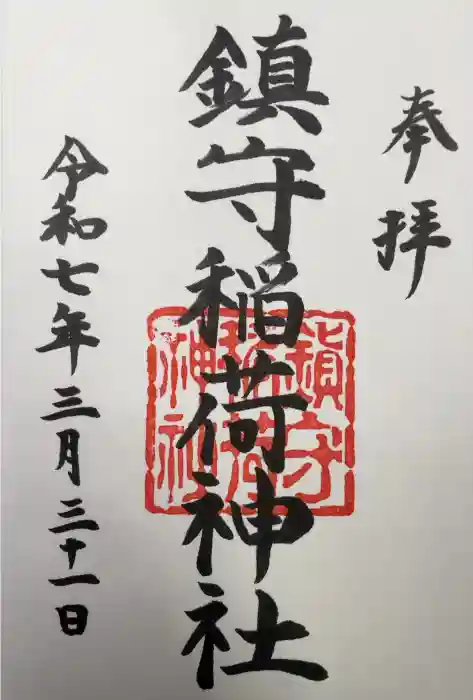 奉拝
鎮守稲荷神社
鎮守
稲荷
神社
令和七年三月三十一日